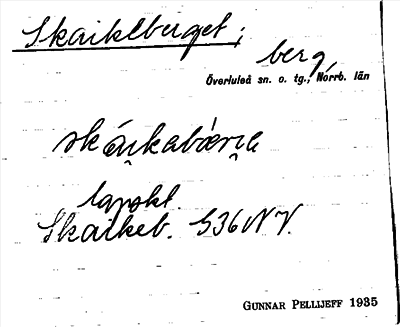 Skaiklberget;
berg,
Överluleå sn. o. tg., Norrb. län
lapskt.
Skaikeb. S36NV.
GUNNAR PELLIJEFF 1935